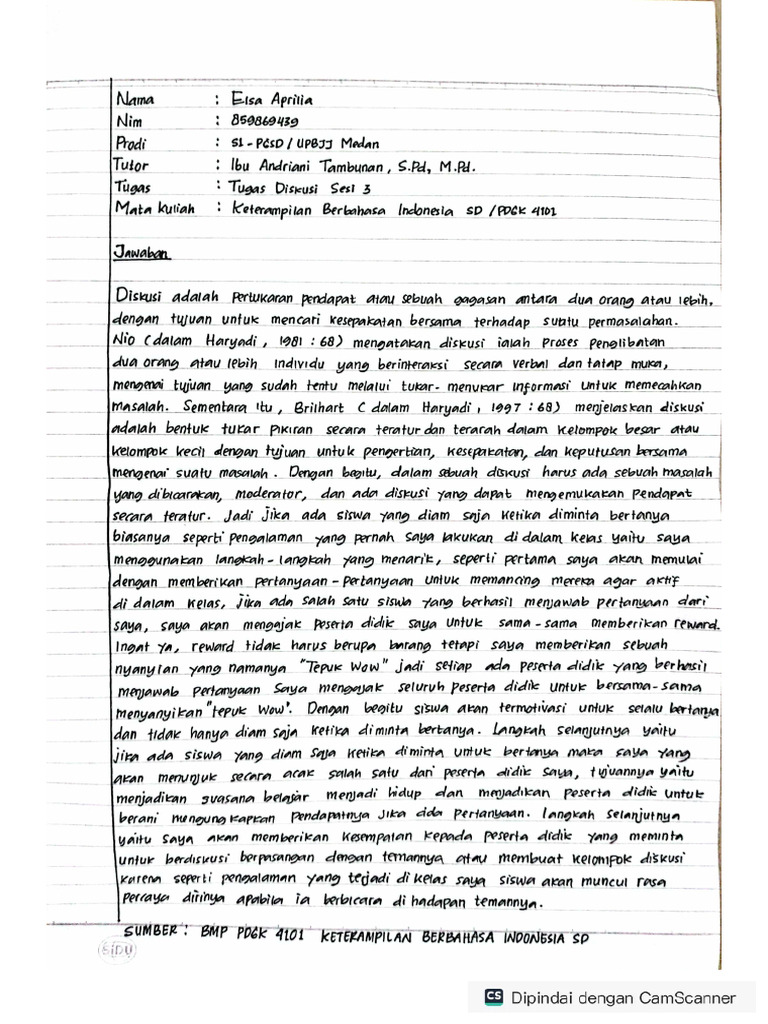 Nama : Elsa Aprilia
Nim : 859869439
Prodi : S1-PGSD / UPBJJ Medan
Tutor : Ibu Andriani Tambunan, S.Pd, M.Pd.
Tugas : Tugas Diskusi Sesi 3
Mata kuliah : Keterampilan Berbahasa Indonesia SD / PDGK 4101
Jawaban
Diskusi adalah Pertukaran pendapat atau sebuah gagasan antara dua orang atau lebih,
dengan tujuan untuk mencari kesepakatan bersama terhadap suatu permasalahan.
Nio (dalam Haryadi, 1981 : 68) mengatakan diskusi ialah Proses penglibatan
dua orang atau lebih individu yang berinteraksi secara verbal dan tatap muka,
mengenai tujuan yang sudah tentu melalui tukar-menukar informasi untuk memecahkan
masalah. Sementara itu, Brilhart (dalam Haryadi, 1997 : 68) menjelaskan diskusi
adalah bentuk tukar pikiran secara teratur dan terarah dalam kelompok besar atau
kelompok kecil dengan tujuan untuk pengertian, kesepakatan, dan keputusan bersama
mengenai suatu masalah. Dengan begitu, dalam sebuah diskusi harus ada sebuah masalah
yang dibicarakan, moderator, dan ada diskusi yang dapat mengemukakan Pendapat
secara teratur. Jadi jika ada siswa yang diam saja ketika diminta bertanya
biasanya seperti pengalaman yang pernah saya lakukan di dalam kelas yaitu saya
menggunakan langkah-langkah yang menarik, seperti pertama saya akan memulai
dengan memberikan pertanyaan-pertanyaan untuk memancing mereka agar aktif
di dalam kelas, jika ada salah satu siswa yang berhasil menjawab pertanyaan dari
saya, saya akan mengajak peserta didik saya untuk sama-sama memberikan reward.
Ingat ya, reward tidak harus berupa barang tetapi saya memberikan sebuah
nyanyian yang namanya "Tepuk Wow" jadi setiap ada peserta didik yang berhasil
menjawab pertanyaan saya mengajak seluruh peserta didik untuk bersama-sama
menyanyikan "tepuk wow". Dengan begitu siswa akan termotivasi untuk selalu bertanya
dan tidak hanya diam saja ketika diminta bertanya. Langkah selanjutnya yaitu
jika ada siswa yang diam saja ketika diminta untuk bertanya maka saya yang
akan menunjuk secara acak salah satu dari peserta didik saya, tujuannya yaitu
menjadikan suasana belajar menjadi hidup dan menjadikan peserta didik untuk
berani mengungkapkan Pendapatnya jika ada pertanyaan. Langkah selanjutnya
yaitu saya akan memberikan kesempatan kepada peserta didik yang meminta
untuk berdiskusi berpasangan dengan temannya atau membuat kelompok diskusi
karena seperti pengalaman yang terjadi di kelas saya siswa akan muncul rasa
percaya dirinya apabila ia berbicara di hadapan temannya.
SUMBER : BMP PDGK 4101 KETERAMPILAN BERBAHASA INDONESIA SD
SIDU
CS Dipindai dengan CamScanner